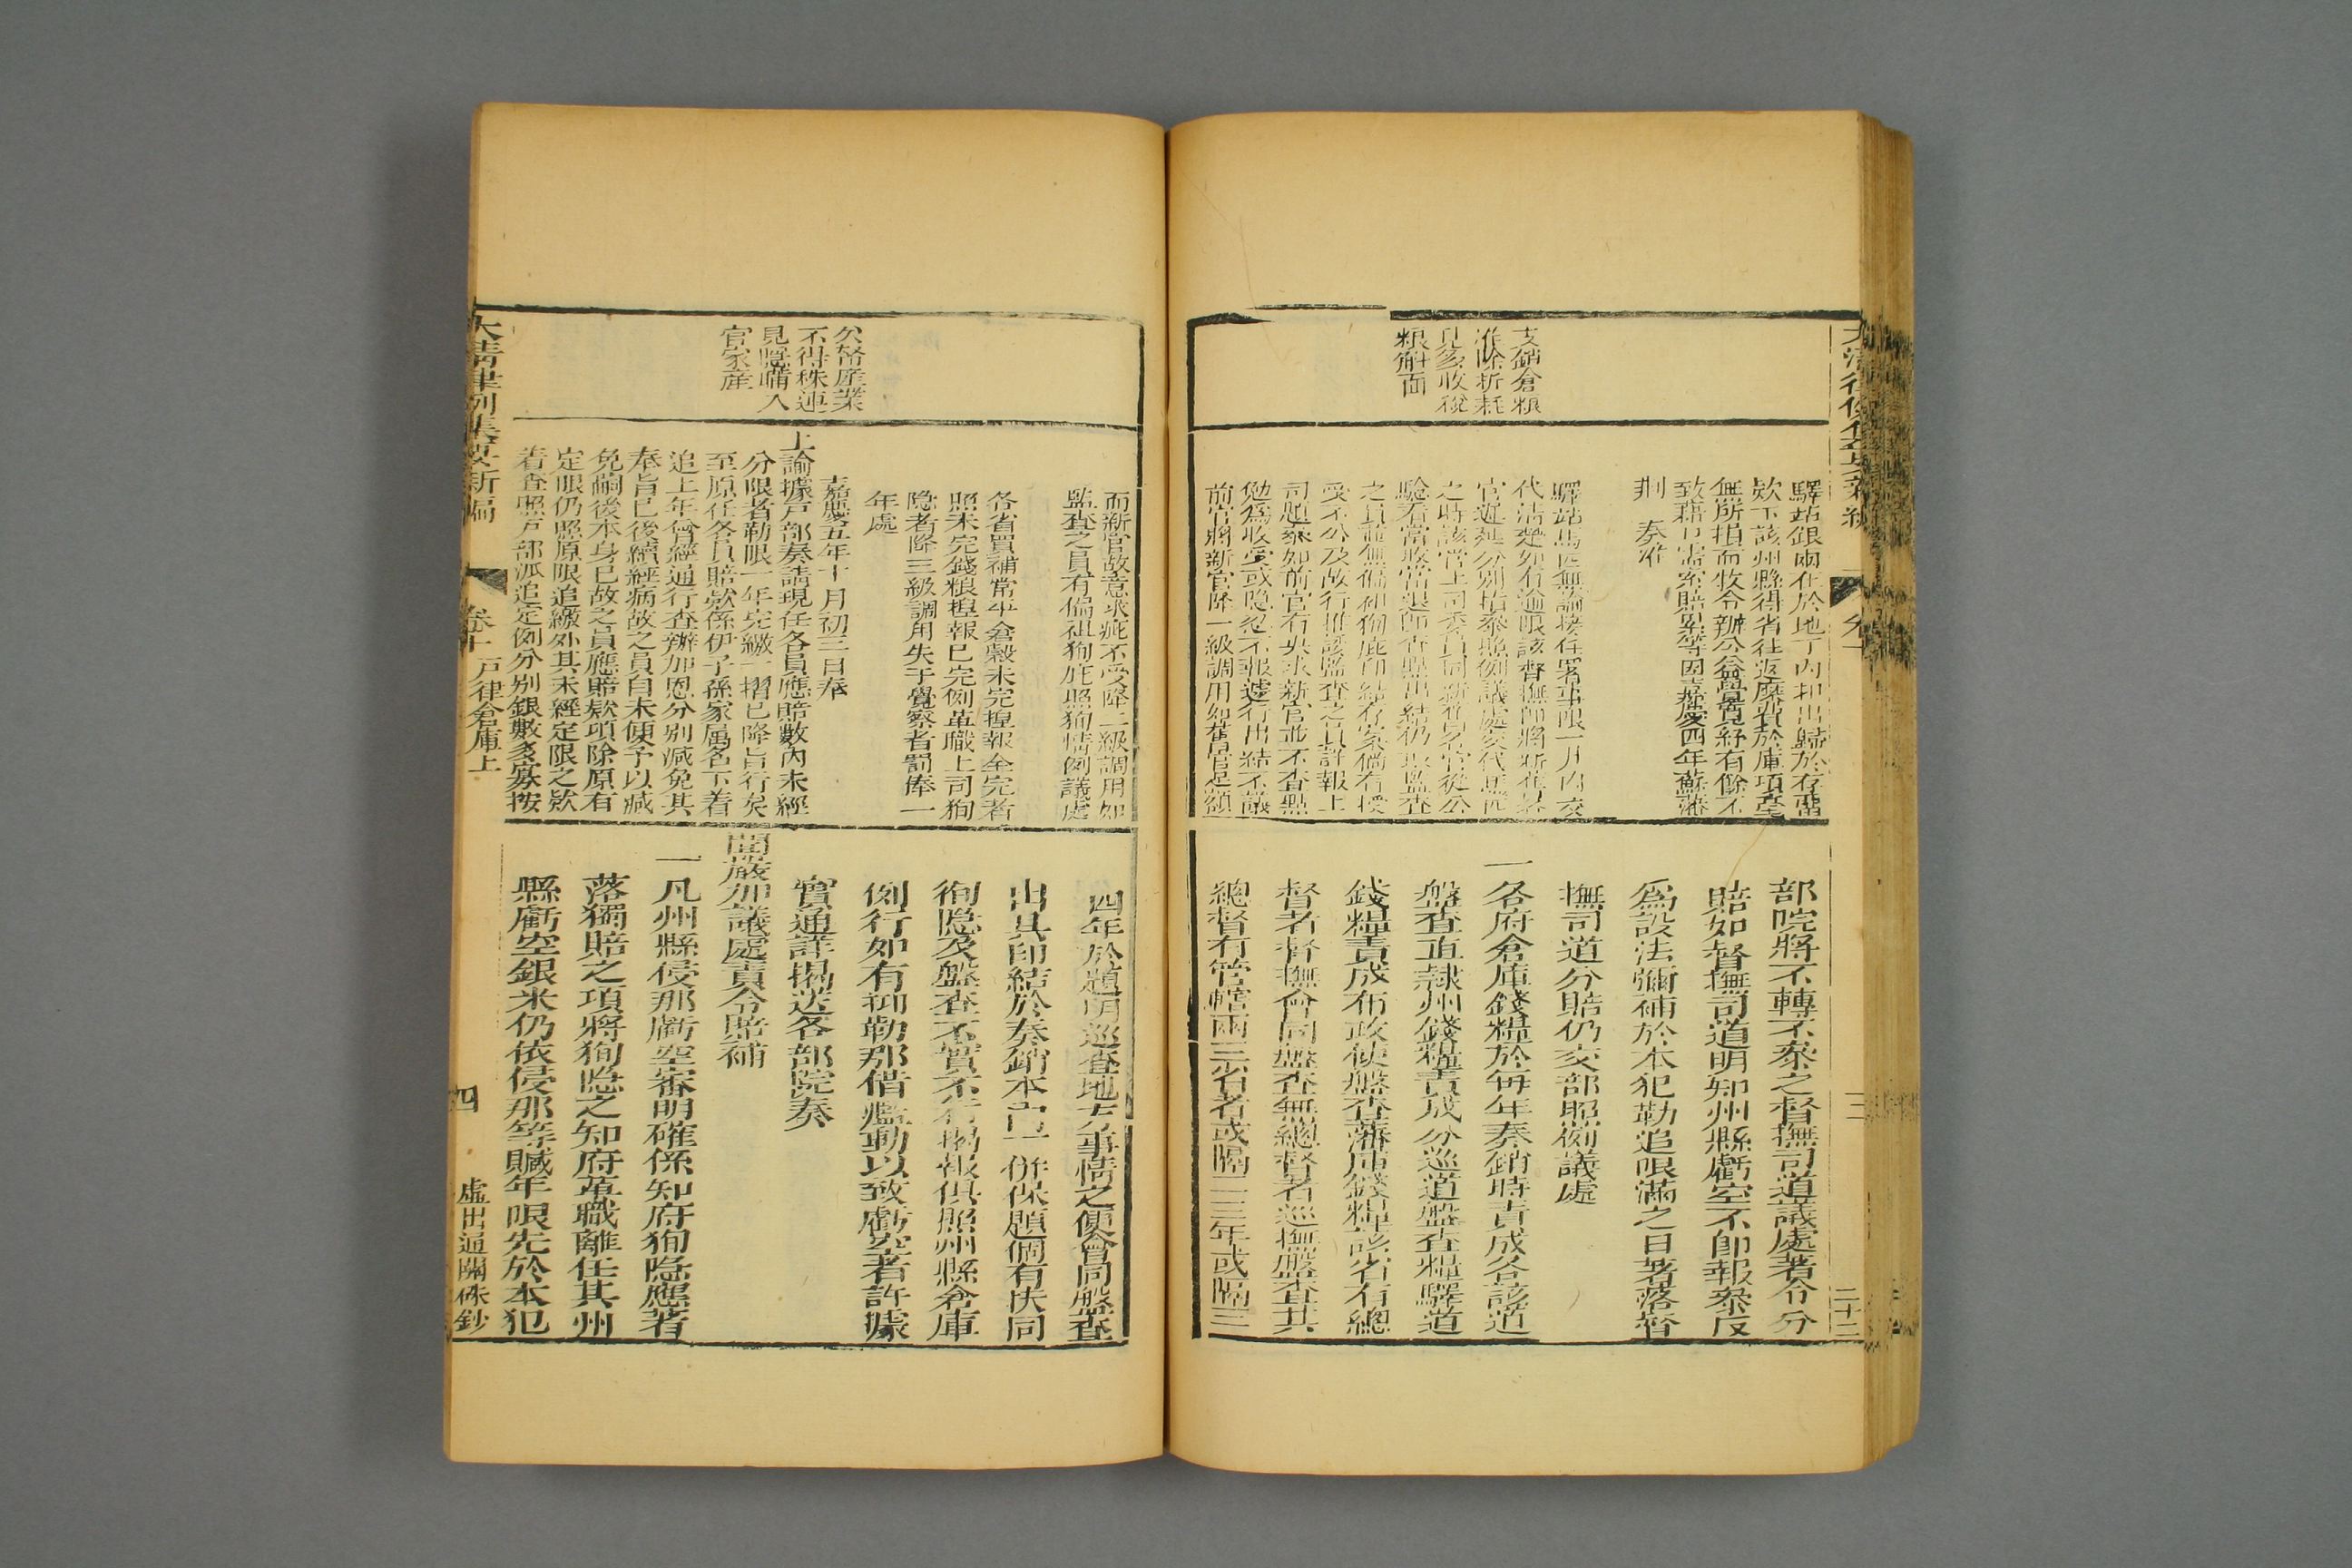 支銷倉粮
准除折耗
見多收稅
粮斛面
驛站銀兩在於地丁內扣出歸於存留
欵下該州縣得省往返糜費於庫項毫
無所損而牧令辦公益見紓有餘不
致藉口需索賠累等因嘉慶四年蘇藩
荆 奏准
驛站馬匹無論接任署事限一月內交
代清楚如有逾限該督撫即將新舊各
官遲延分別指叅照例議處交代馬匹
之時該管上司委員同新舊各官從公
驗看當收當退即查點出結仍取監查
之員並無偏袒徇庇印結存案倘有授
受不公及故行推諉監查之員詳報上
司題叅如前官有央求新官並不查點
勉爲收受或隐忍不報遽行出結不議
前官將新官降一級調用如舊官足額
部院將不轉不叅之督撫司道議處著令分
賠如督撫司道明知州縣虧空不即報叅反
爲設法彌補於本犯勒追限滿之日著落督
撫司道分賠仍交部照例議處
一各府倉庫錢糧於每年奏銷時責成各該道
盤查直隸州錢糧責成分巡道盤查糧驛道
錢糧責成布政使盤查藩庫錢糧該省有總
督者督撫會同盤查無總督者巡撫盤查其
總督有管轄兩三省者或隔二三年或隔三
二十二
欠帑産業
不得株連
見隱瞞入
官家産
而新官故意求疵不受降二級調用如
監查之員有偏袒狥庇照狥情例議處
各省買補常平倉穀未完揑報全完者
照未完錢粮揑報已完例革職上司狥
隐者降三級調用失于覺察者罰俸一
年處
嘉慶五年十月初三日奉
上諭據戶部奏請現任各員應賠數內未經
分限者勒限一年完繳一摺已降旨行矣
至原任各員賠欵係伊子孫家属名下着
追上年曾經通行查辦加恩分别减免其
奉旨已後續經病故之員自未便予以减
免嗣後本身已故之員應賠欵項除原有
定限仍照原限追繳外其未經定限之欵
着查照戶部派追定例分别銀數多寡按
四年於題明巡查地方事情之便會同盤查
出具印結於奏銷本內一併保題倘有扶同
徇隐及盤查不實不行揭報俱照州縣倉庫
例行如有抑勒那借濫動以致虧空者許據
實通詳揭送各部院奏
聞嚴加議處責令賠補
一凡州縣侵那虧空審明確係知府狥隐應著
落獨賠之項將狥隐之知府革職離任其州
縣虧空銀米仍依侵那等贓年限先於本犯
大清律例集要新編 卷十一 戶律倉庫上 四 虛出通關硃鈔